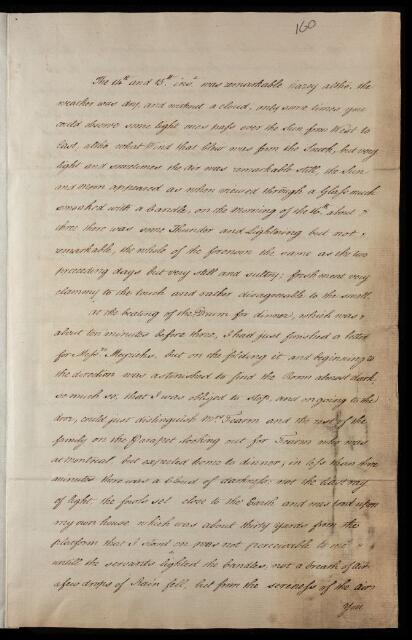 160
The 14th and 15th inst. was remarkable hazy altho, the
weather was dry, and without a cloud, only some times you
could observe some light ones pass over the Sun from West to
East, altho what Wind that blew was from the South, but very
light and sometimes the air was remarkable still, the Sun
and Moon appeared as when viewed through a Glass much
smoaked with a Candle, on the Morning of the 16th about
three there was some Thunder and Lightning but not
remarkable, the whole of the forenoon the same as the two
preceeding days but very still and sultry; fresh meat very
clammy to the touch and rather disagreeable to the smell.
at the beating of the Drum for dinner, which was
about ten minutes before three, I had just finished a letter
for Messrs but on the folding it and beginning to
the direction was astonished to find the Room almost dark,
so much so, that I was obliged to stop, and on going to the
door, could just distinguish Mrs Fearon and the rest of the
family on the Parapet looking out for Fearon who was
at Montreal but expected home to dinner; in less than five
minutes there was a Cloud of darkness not the least ray
of light; the fowls set close to the Earth and mes upon
my own house which was about thirty yards from the
platform that I stood on was not perceivable to me
untill the servants lighted the Candles, not a breath of Air
a few drops of Rain fell, but from the sereness of the Air
You